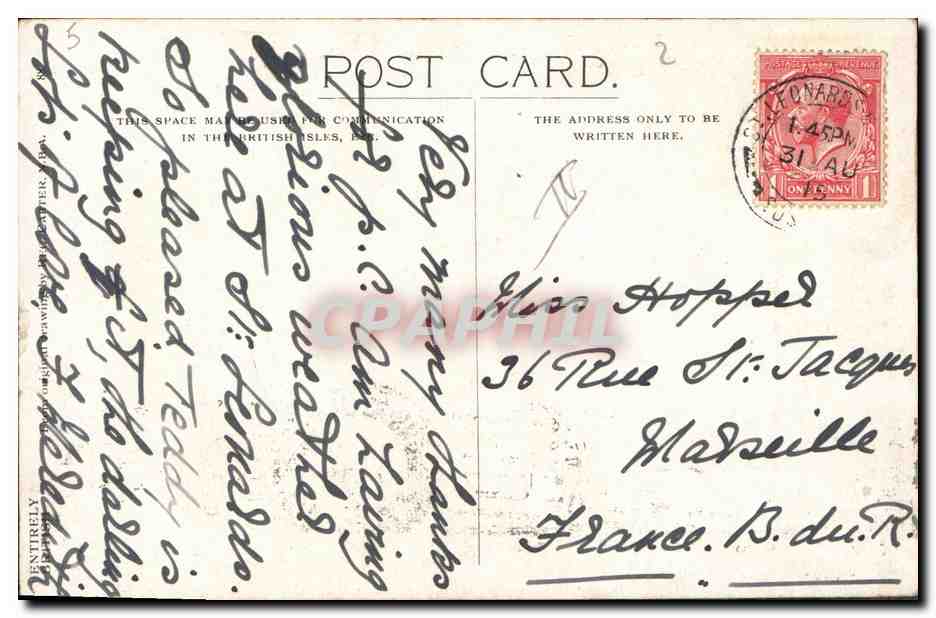 5
2
POST CARD.
THIS SPACE MAY BE USED FOR COMMUNICATION
IN THE BRITISH ISLES, ETC.
THE ADDRESS ONLY TO BE
WRITTEN HERE.
POSTAGE REVENUE
ONE PENNY
1 1
ST LEONARDS
1.45PM
31 AU
IV
Very many thanks
for p.c. Am having
glorious weather
here at St: Leonards.
So pleased Teddy is
keeping fit, the darling
Miss Hopper
36 Rue St: Jacques
Marseille
France. B. du. R.
ENTIRELY
BRITISH
From original drawing by REG CARTER
CPAPHIL